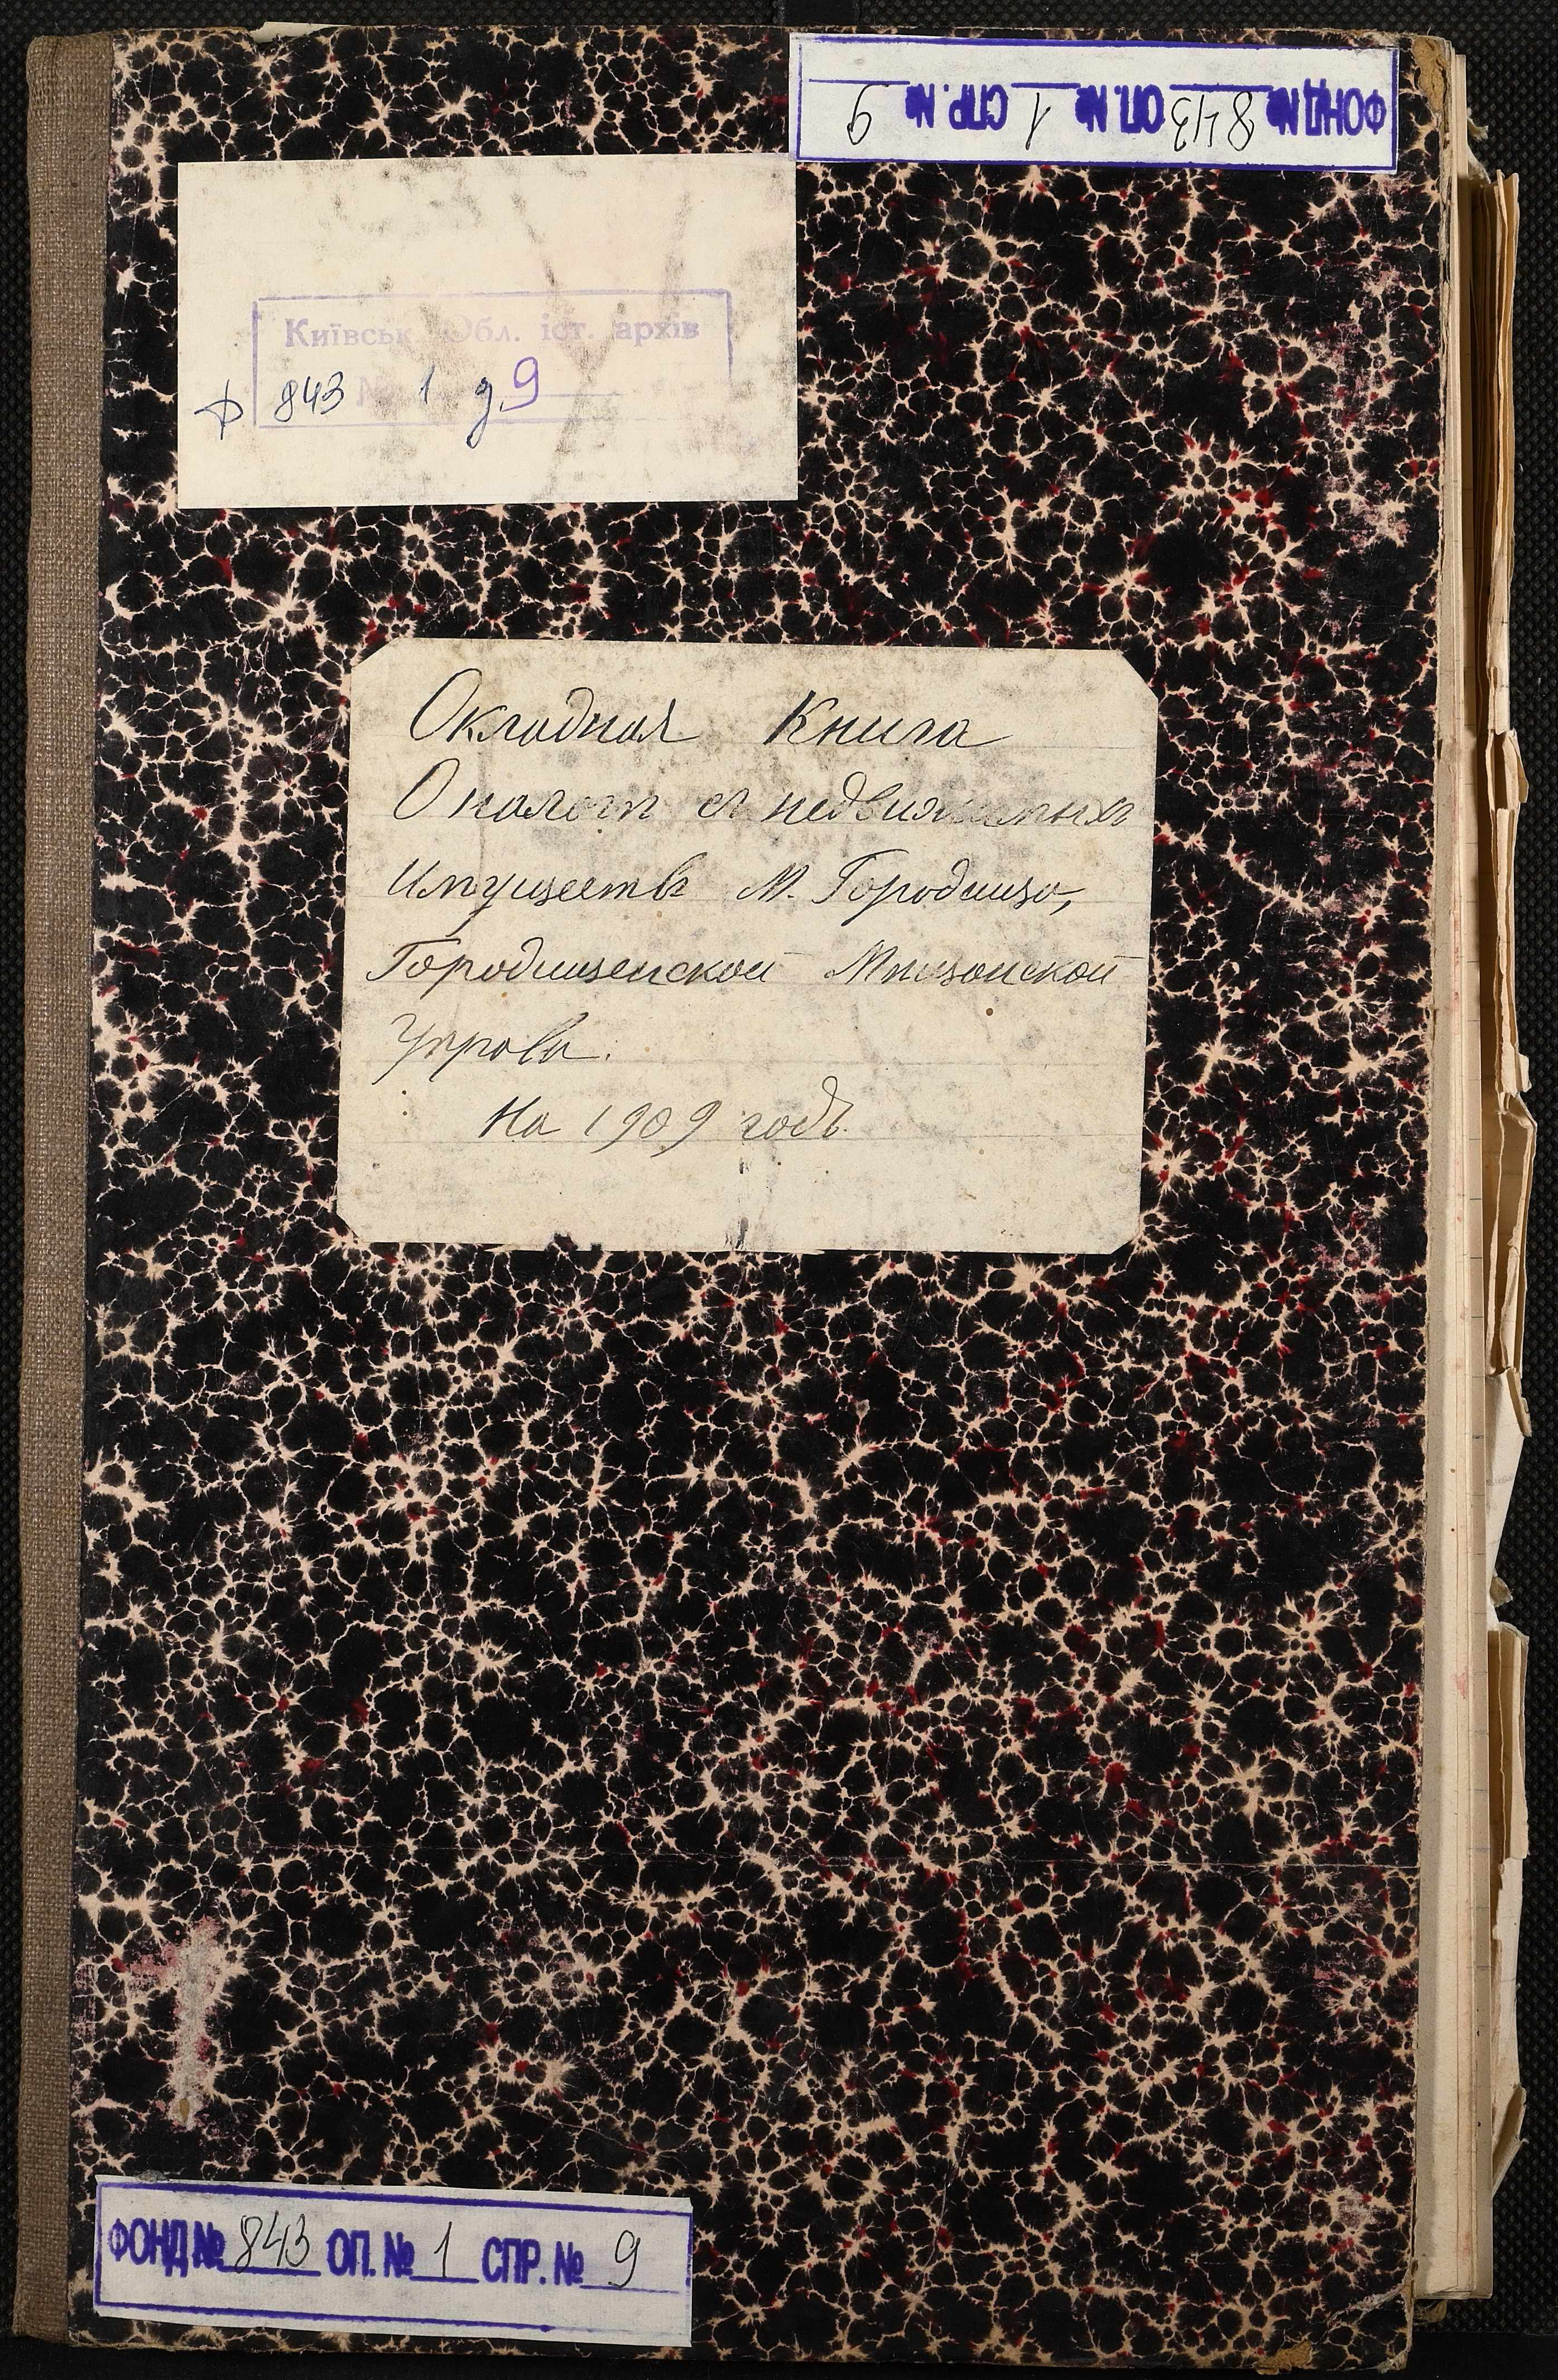 ФОНД № 843 ОП. № 1 СПР. № 9
Київськ Обл. іст. архів
ф 843 № 1 д. 9
Окладная Книга
О налогѣ съ недвижимыхъ
Имуществъ М. Городищо,
Городищенской Мѣщанской
Управы.
На 1909 годъ.
ФОНД № 843 ОП. № 1 СПР. № 9